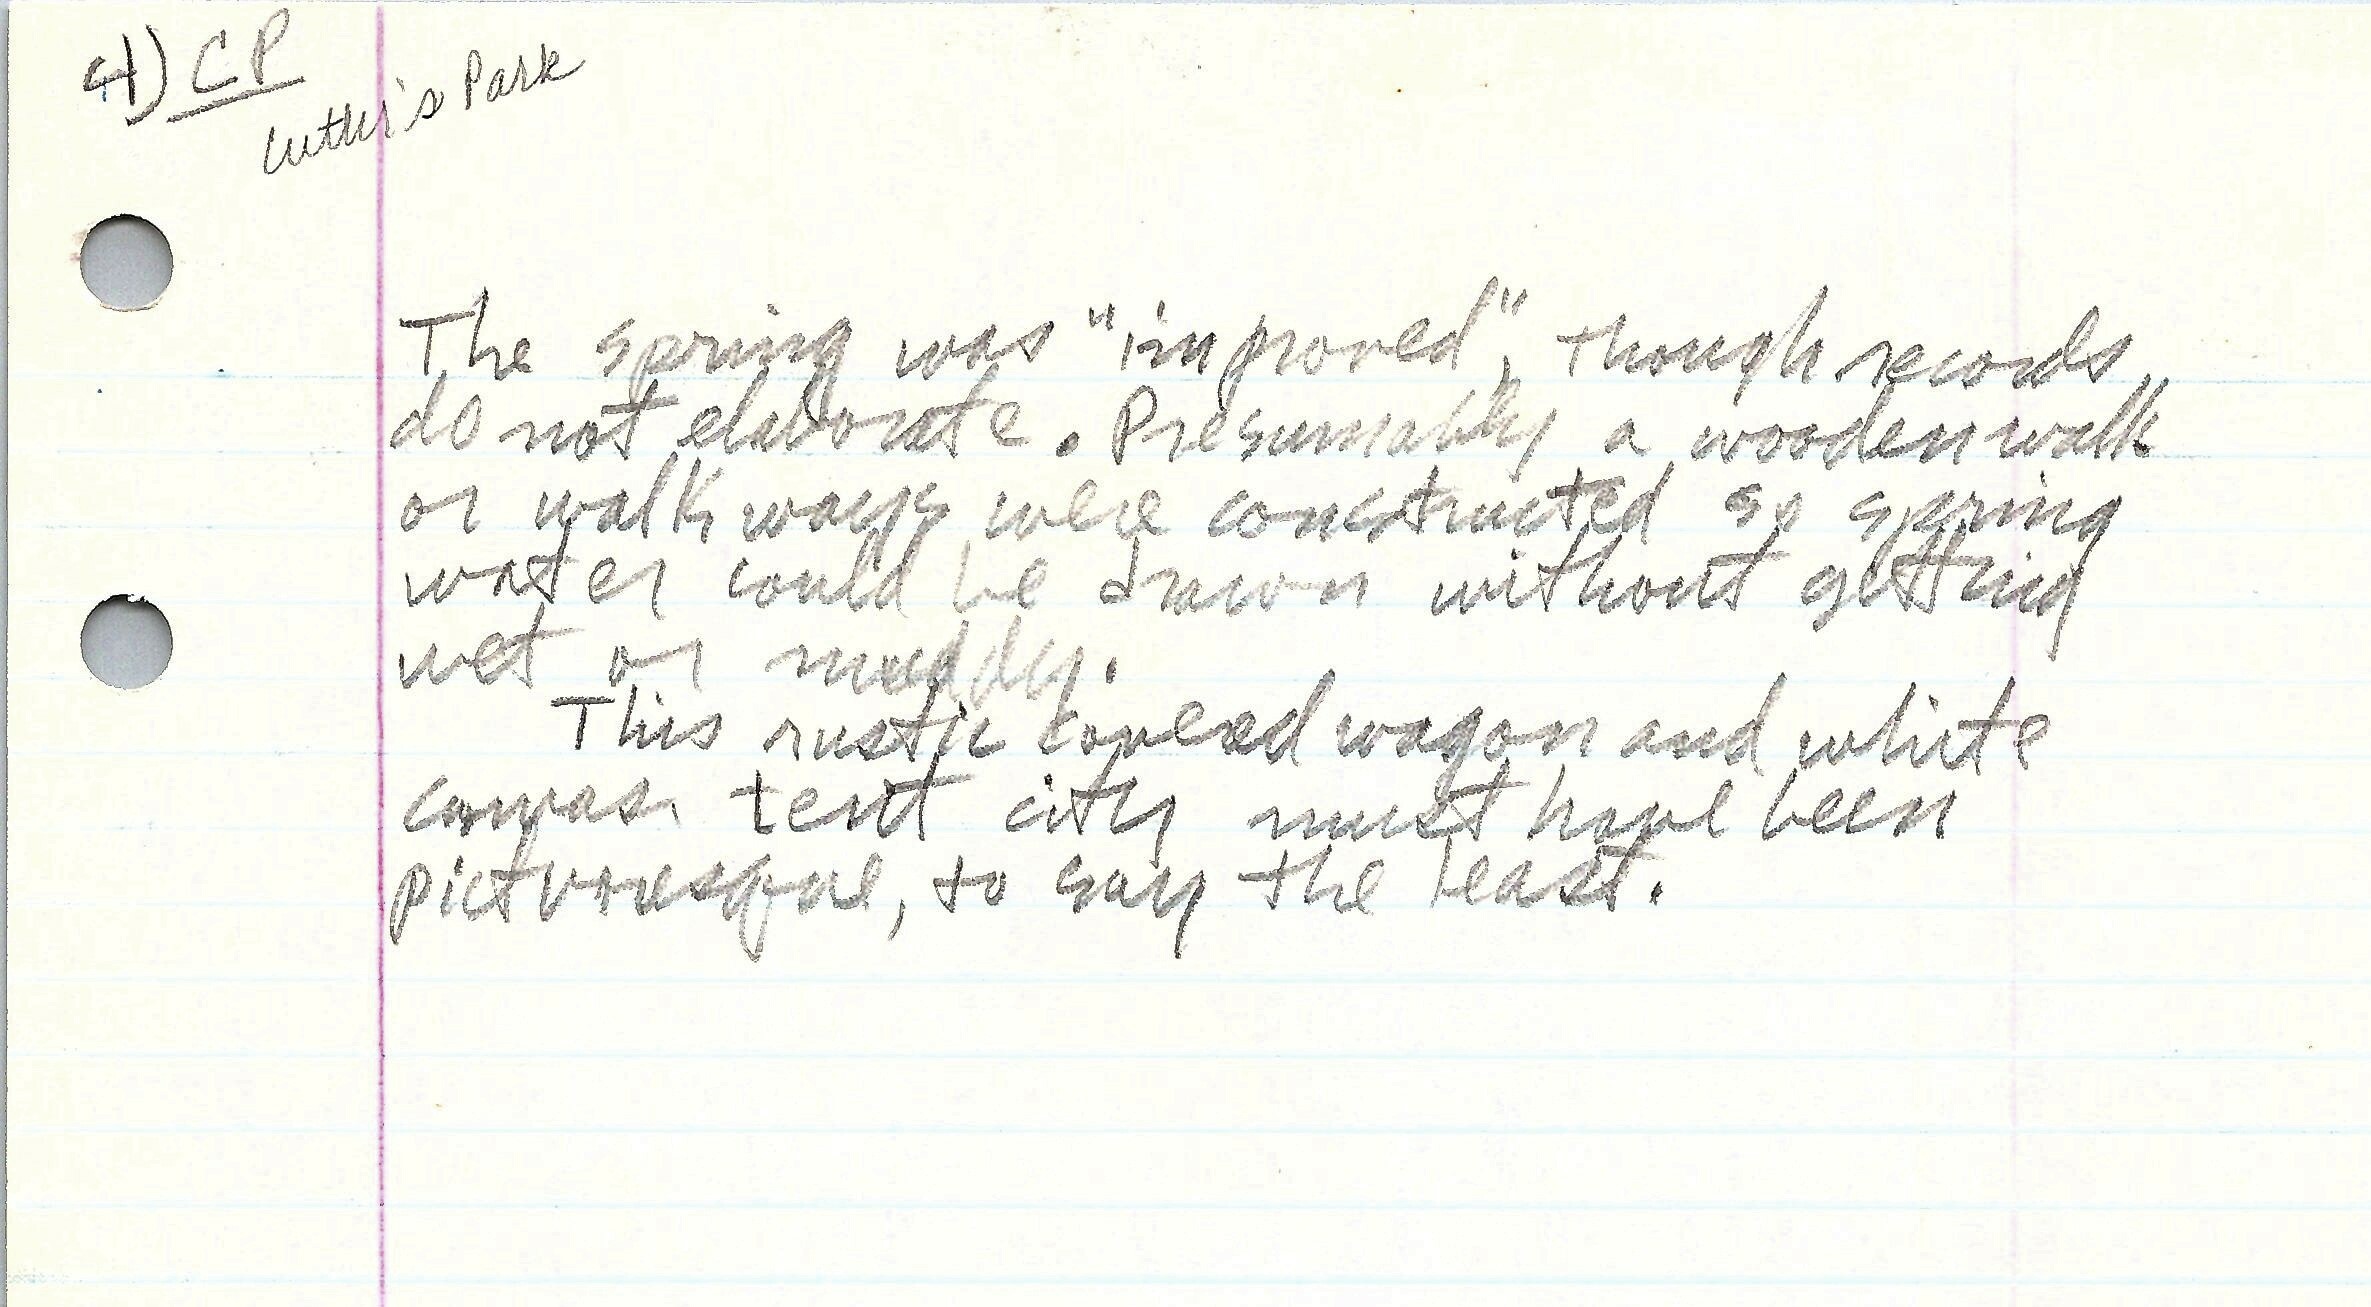 4) CP
Luthi's Park
The spring was "improved", though records
do not elaborate. Presumably a wooden walk
or walkways were constructed so spring
water could be drawn without getting
wet or muddy.
This rustic covered wagon and white
canvas tent city must have been
picturesque, to say the least.